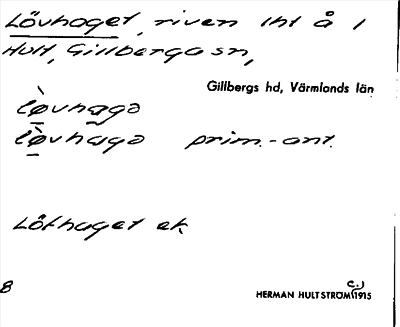 Lövhaget, riven lht å 1
Hult, Gillberga sn,
Gillbergs hd, Värmlands län
lø̀vhagə
lø̀vhagə prim.-ant.
Löfhaget ek
8
HERMAN HULTSTRÖM (?) 1915